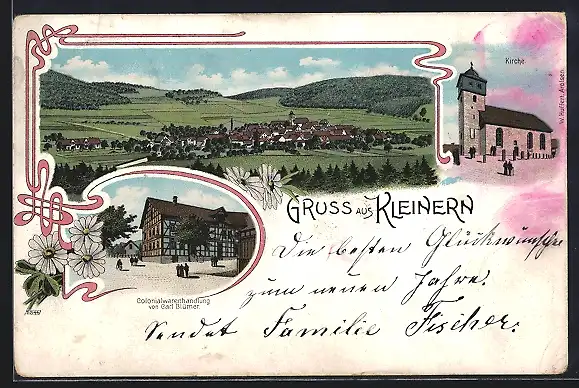 Kirche
W. Hulfert, Arolsen.
GRUSS AUS KLEINERN
Colonialwarenhandlung
von Carl Blümer.
Die besten Glückwünsche
zum neuen Jahre.
Sendet Familie Fischer.